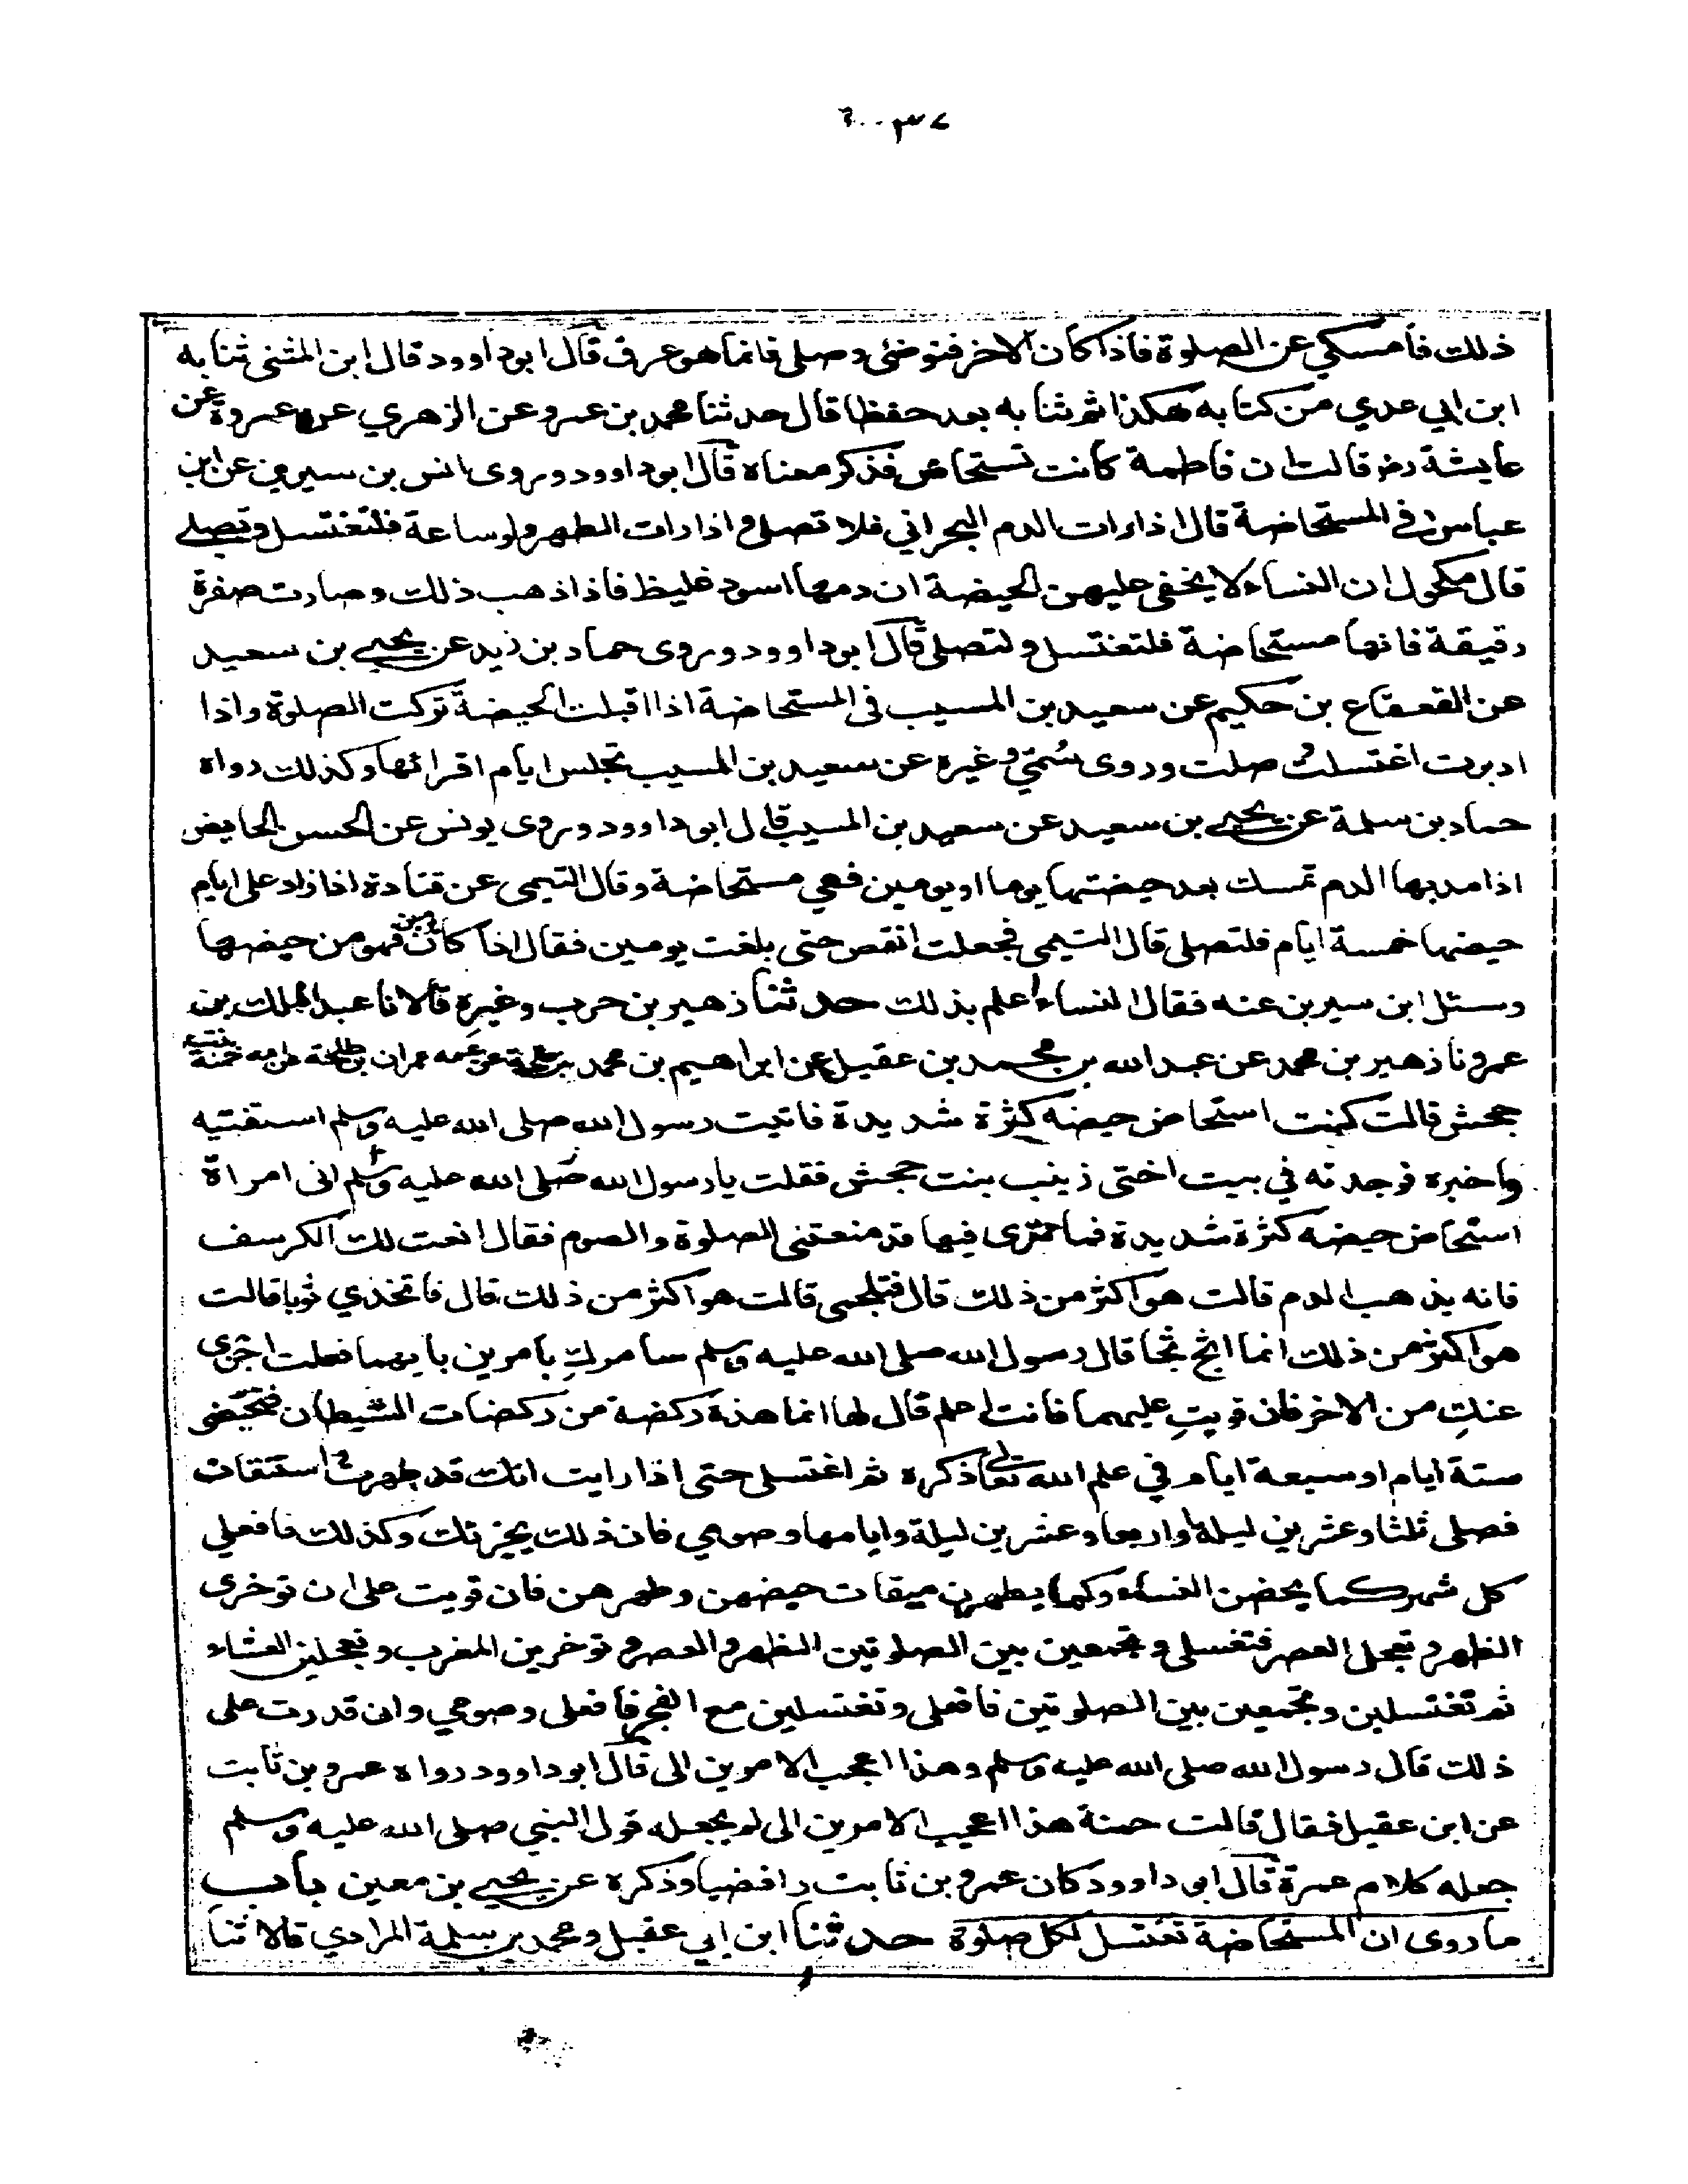 ذلك فأمسكي عن الصلوة فاذا كان الاخر فتوضئي وصلي فانما هو عرق قال ابو داوود قال ابن المثنى ثنا به
ابن ابي عدي من كتابه هكذا ثم ثنا به بعد حفظا قال حدثنا محمد بن عمرو عن الزهري عن عروة عن
عايشة رضـ قالت ان فاطمة كانت تستحاض فذكر معناه قال ابو داوود وروى انس بن سيرين عن ابن
عباس في المستحاضة قال اذا رات الدم البحراني فلا تصلي واذا رات الطهر ولو ساعة فلتغتسل وتصلي
قال مكحول ان النساء لا يخفى عليهن الحيضة ان دمها اسود غليظ فاذا ذهب ذلك وصارت صفرة
رقيقة فانها مستحاضة فلتغتسل ولتصلي قال ابو داوود وروى حماد بن زيد عن يحيى بن سعيد
عن القعقاع بن حكيم عن سعيد بن المسيب في المستحاضة اذا اقبلت الحيضة تركت الصلوة واذا
ادبرت اغتسلت وصلت وروى سُمَيّ وغيره عن سعيد بن المسيب تجلس ايام اقرائها وكذلك رواه
حماد بن سلمة عن يحيى بن سعيد عن سعيد بن المسيب قال ابو داوود وروى يونس عن الحسن الحايض
اذا مد بها الدم تمسك بعد حيضتها يوما او يومين فهي مستحاضة وقال التيمي عن قتادة اذا زاد على ايام
حيضها خمسة ايام فلتصلي قال التيمي فجعلت انقص حتى بلغت يومين فقال اذا كان يومين فهو من حيضها
وسئل ابن سيرين عنه فقال النساء اعلم بذلك حدثنا زهير بن حرب وغيره قالا نا عبد الملك بن
عمرو نا زهير بن محمد عن عبد الله بن محمد بن عقيل عن ابراهيم بن محمد بن طلحة عن عمه عمران بن طلحة عن امه حمنة بنت
جحش قالت كنت استحاض حيضه كثرة شديدة فاتيت رسول الله صلى الله عليه وسلم استفتيه
واخبره فوجدته في بيت اختي زينب بنت جحش فقلت يا رسول الله صلى الله عليه وسلم اني امراة
استحاض حيضه كثرة شديدة فما تترى فيها قد منعتني الصلوة والصوم فقال انعت لك الكرسف
فانه يذهب الدم قالت هو اكثر من ذلك قال فتلجمي قالت هو اكثر من ذلك قال فاتخذي ثوبا قالت
هو اكثر من ذلك انما اثج ثجا قال رسول الله صلى الله عليه وسلم سامركِ بأمرين بايهما فعلت اجزى
عنكِ من الاخر فان قويتِ عليهما فانت اعلم قال لها انما هذه ركضة من ركضات الشيطان فتحيضي
ستة ايام او سبعة ايام في علم الله تعالى ذكره ثم اغتسلي حتى اذا رايت انك قد طهرت واستنقات
فصلي ثلثا وعشرين ليلة او اربعا وعشرين ليلة وايامها وصومي فان ذلك يجزئك وكذلك فافعلي
كل شهر كما يحضن النساء وكما يطهرن ميقات حيضهن وطهرهن فان قويت على ان توخري
الظهر وتعجل العصر فتغتسلي وتجمعين بين الصلوتين الظهر والعصر وتوخرين المغرب وتعجلين العشاء
ثم تغتسلين وتجمعين بين الصلوتين فافعلي وتغتسلين مع الفجر فافعلي وصومي وان قدرت على
ذلك قال رسول الله صلى الله عليه وسلم وهذا اعجب الامرين الي قال ابو داوود رواه عمرو بن ثابت
عن ابن عقيل فقال قالت حمنة هذا اعجب الامرين الي لم يجعله قول النبي صلى الله عليه وسلم
جعله كلام عمرة قال ابو داوود كان عمرو بن ثابت رافضيا وذكره عن يحيى بن معين باب
ما روى ان المستحاضة تغتسل لكل صلوة حدثنا ابن ابي عقيل ومحمد بن سلمة المرادي قالا ثنا